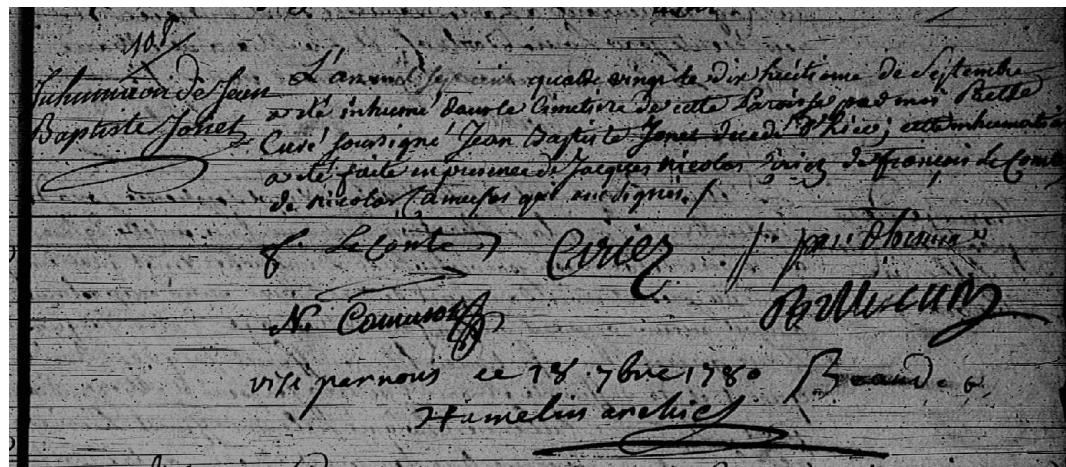 108
Inhumation de Jean
Baptiste Jonet
L'an mil sept cens quatre vingt le dix huitieme de Septembre
a été inhumé dans le Cimetiere de cette Paroisse par moi
Curé soussigné Jean Baptiste Jonet decedé d'hier; cette inhumation
a été faite en presence de Jacques Nicolas de françois Le Comte
de Nicolas Camuson qui ont signés./.
f. LeConte
Ciriez
N. Camuson
visé par nous ce 18 7bre 1780
Hamelin archid